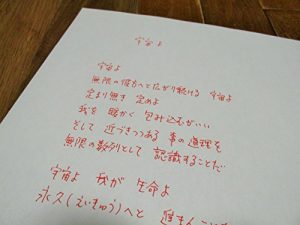 宇宙よ
宇宙よ
無限の彼方へと広がり続ける 宇宙よ
定まり無き 定めよ
我を 暖かく 包み込むがいい
そして 近づきつつある 事の道理を
無限の数列として 認識することだ
宇宙よ 我が 生命よ
永久(えいきゅう)へと 進まん